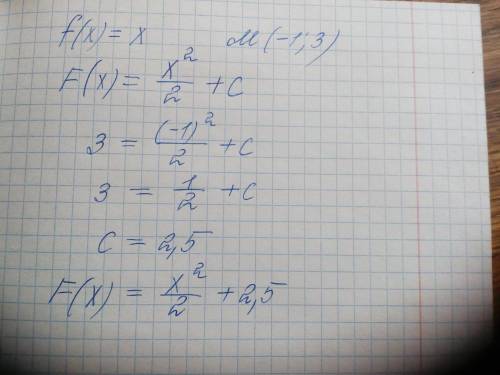 f(x) = x M(-1; 3)
F(x) = x²/2 + C
3 = (-1)²/2 + C
3 = 1/2 + C
C = 2,5
F(x) = x²/2 + 2,5